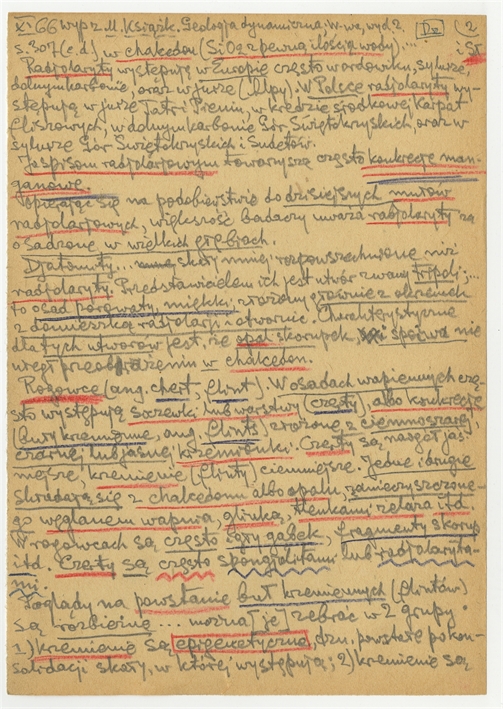 XI.66 wyp z M. Książk. Geologia dynamiczna, W-wa, wyd. 2. Dz (2
s. 307 (c.d.) w chalcedon (SiO2 z pewną ilością wody)... i SR
Radjolaryty występują w Europie często w ordowiku, sylurze,
dolnym karbonie, oraz w jurze (Alpy). W Polsce radjolaryty wy-
stępują w jurze Tatr i Pienin, w kredzie środkowej Karpat
fliszowych, w dolnym karbonie Gór Świętokrzyskich, oraz w
sylurze Gór Świętokrzyskich i Sudetów.
Łupkom radjolarjowym towarzyszą często konkrecje man-
ganowe.
Opierając się na podobieństwie do dzisiejszych mułów
radjolarjowych, większość badaczy uważa radjolaryty za
osadzone w wielkich głębiach.
Djatomity... skały mniej rozpowszechnione niż
radjolaryty. Przedstawicielem ich jest utwór zwany tripoli;...
to osad porowaty, miękki, złożony głównie z okrzemek
z domieszką radjolarji i otwornic. Charakterystyczne
dla tych utworów jest, że opal skorupek i spoiwa nie
uległ przeobrażeniu w chalcedon.
Rogowce (ang. chert, flint). W osadach wapiennych czę-
sto występują soczewki lub warstwy (czerty), albo konkrecje
(buły krzemienne, ang. flints) złożone z ciemnoszarej,
czarnej lub jasnej krzemionki. Czerty są naogół jaś-
niejsze, krzemienie (flinty) ciemniejsze. Jedne i drugie
składają się z chalcedonu albo opalu, zanieczyszczone-
go węglanem wapnia, glinką, tlenkami żelaza itd.
W rogowcach są często igły gąbek, fragmenty skorup
itd. Czerty są często spongjolitami lub radjolaryta-
mi.
Poglądy na powstanie buł krzemiennych (flintów)
są rozbieżne... można [je] zebrać w 2 grupy:
1) krzemienie są epigenetyczne, tzn. powstałe po kon-
solidacji skały, w której występują; 2) krzemienie są